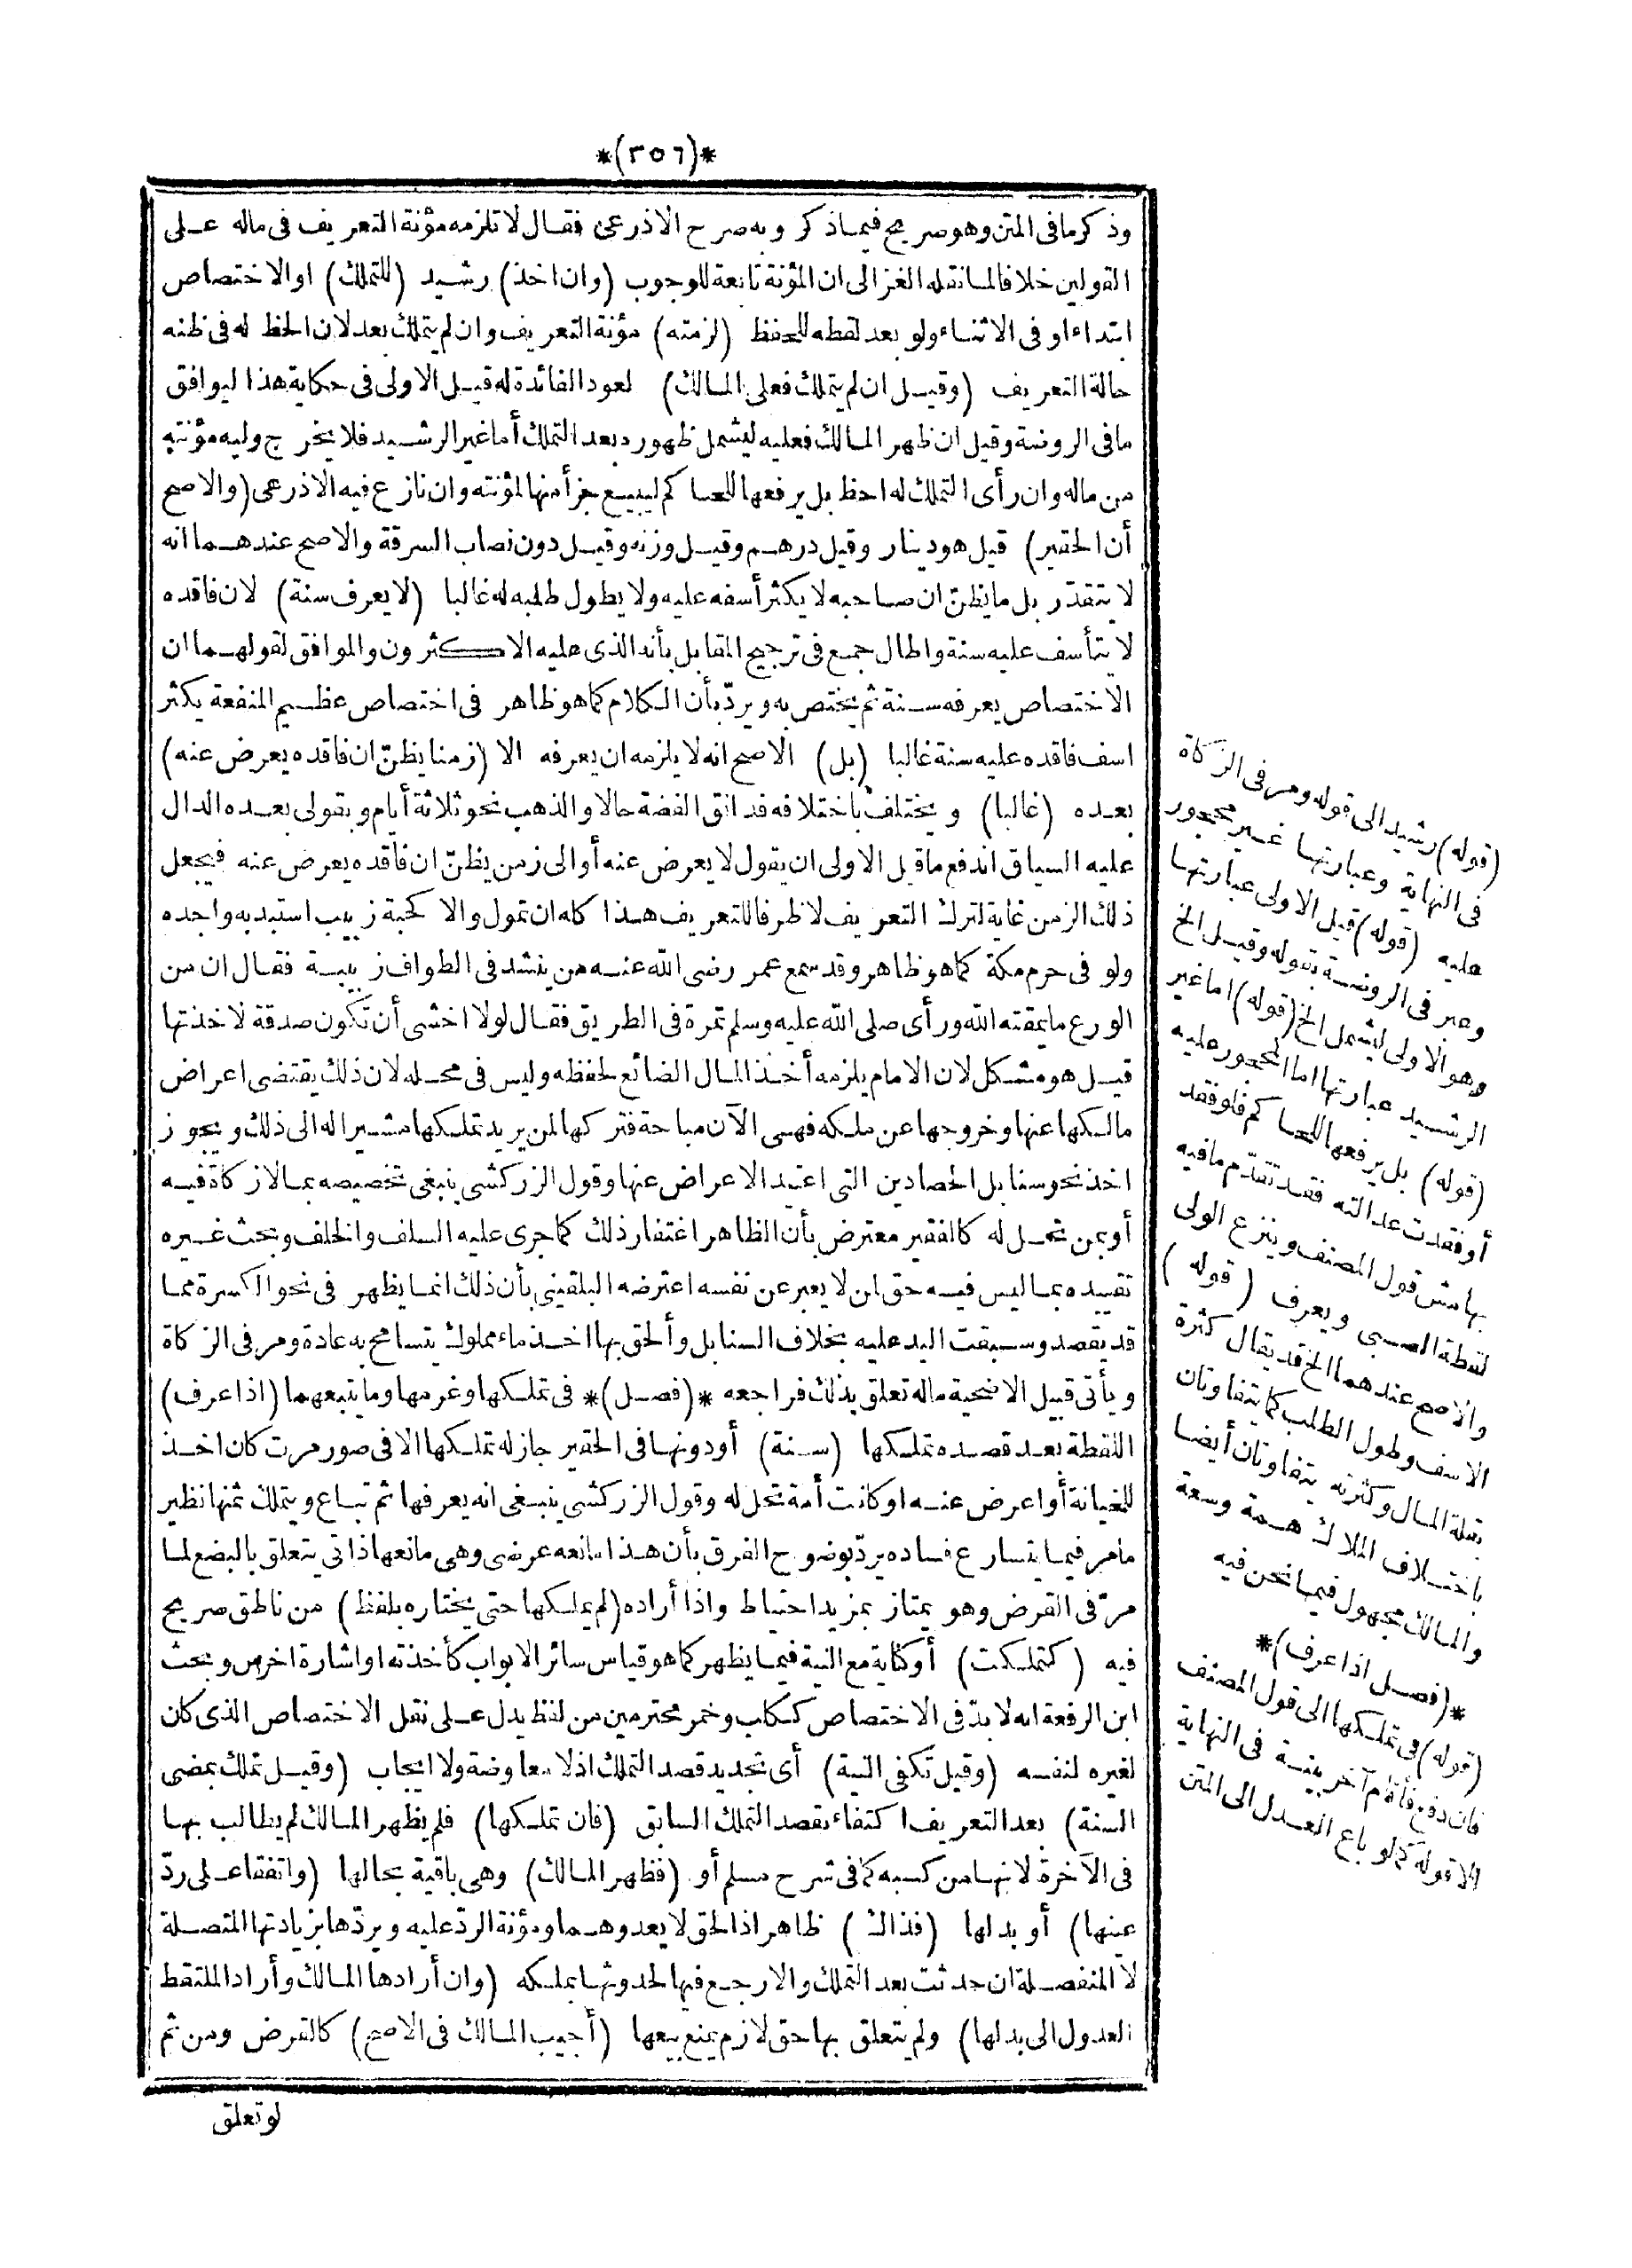 *(٣٥٦)*
وذكر ما في المتن وهو صريح فيما ذكر وبه صرح الاذرعي فقال لا تلزمه مؤنة التعريف في ماله على
القولين خلافا لما نقله الغزالي ان المؤنة تابعة للوجوب (وان اخذ) رشيد (للتملك) او الاختصاص
ابتداء او في الاثناء ولو بعد لقطه للحفظ (لزمته) مؤنة التعريف وان لم يتملك بعد لان الحظ له في ظنه
حالة التعريف (وقيل ان لم يتملك فعلى المالك) لعود الفائدة له قيل الاولى في حكاية هذا ليوافق
ما في الروضة وقيل ان ظهر المالك فعليه ليشمل ظهوره بعد التملك أما غير الرشيد فلا يخرج وليه مؤنته
من ماله وان رأى التملك له احظ بل يرفعها للحاكم ليبيع جزأ منها لمؤنته وان نازع فيه الاذرعي (والاصح
أن الحقير) قيل هو دينار وقيل درهم وقيل وزنه وقيل دون نصاب السرقة والاصح عندهما انه
لا يتقدّر بل ما يظنّ ان صاحبه لا يكثر أسفه عليه ولا يطول طلبه له غالبا (لا يعرف سنة) لان فاقده
لا يتأسف عليه سنة واطال جمع في ترجيح المقابل بأنه الذي عليه الاكثرون والموافق لقولهما ان
الاختصاص يعرفه سنة ثم يختص به ويردّ بأن الكلام كما هو ظاهر في اختصاص عظيم المنفعة يكثر
اسف فاقده عليه سنة غالبا (بل) الاصح انه لا يلزمه ان يعرفه الا (زمنا يظنّ ان فاقده يعرض عنه)
بعده (غالبا) ويختلف باختلافه فدانق الفضة حالا والذهب نحو ثلاثة أيام وبقولي بعده الدال
عليه السياق اندفع ما قيل الاولى ان يقول لا يعرض عنه أو الى زمن يظنّ ان فاقده يعرض عنه فيجعل
ذلك الزمن غاية لترك التعريف لا ظرفا للتعريف هذا كله ان تمول والا كحبة زبيب استبد به واجده
ولو في حرم مكة كما هو ظاهر وقد سمع عمر رضي الله عنه من ينشد في الطواف زبيبة فقال ان من
الورع ما يمقته الله ورأى صلى الله عليه وسلم تمرة في الطريق فقال لولا اخشى أن تكون صدقة لاخذتها
قيل هو مشكل لان الامام يلزمه أخذ المال الضائع لحفظه وليس في محله لان ذلك يقتضي اعراض
مالكها عنها وخروجها عن ملكه فهي الآن مباحة فتركها لمن يريد تملكها مشيرا له الى ذلك ويجوز
اخذ نحو سنابل الحصادين التي اعتيد الاعراض عنها وقول الزركشي ينبغي تخصيصه بما لا زكاة فيه
أو بمن تحل له كالفقير معترض بأن الظاهر اغتفار ذلك كما جرى عليه السلف والخلف وبحث غيره
تقييده بما ليس فيه حق لمن لا يعبر عن نفسه اعترضه البلقيني بأن ذلك انما يظهر في نحو الكسرة مما
قد يقصد وسبقت اليد عليه بخلاف السنابل وألحق بها اخذ ماء مملوك يتسامح به عادة ومر في الزكاة
ويأتي قبيل الاضحية ما له تعلق بذلك فراجعه *(فصل)* في تملكها وغرمها وما يتبعهما (اذا عرف)
اللقطة بعد قصده تملكها (سنة) أو دونها في الحقير جاز له تملكها الا في صور مرت كان اخذ
للخيانة أو اعرض عنه او كانت أمة تحل له وقول الزركشي ينبغي انه يعرفها ثم تباع ويتملك ثمنها نظير
ما مر فيما يتسارع فساده يردّ بوضوح الفرق بأن هذا مانعه عرضي وهي مانعها ذاتي يتعلق بالبضع لما
مرّ في القرض وهو يمتاز بمزيد احتياط واذا أراده (لم يملكها حتى يختاره بلفظ) من ناطق صريح
فيه (كتملكت) أو كناية مع النية فيما يظهر كما هو قياس سائر الابواب كأخذته او اشارة اخرس وبحث
ابن الرفعة انه لا بدّ في الاختصاص ككلب وخمر محترمين من لفظ يدل على نقل الاختصاص الذي كان
لغيره لنفسه (وقيل تكفي النية) أي تجديد قصد التملك اذ لا معاوضة ولا ايجاب (وقيل تملك بمضي
السنة) بعد التعريف اكتفاء بقصد التملك السابق (فان تملكها) فلم يظهر المالك لم يطالب بها
في الآخرة لانها من كسبه كما في شرح مسلم أو (فظهر المالك) وهي باقية بحالها (واتفقا على ردّ
عينها) أو بدلها (فذاك) ظاهر اذ الحق لا يعدوهما ومؤنة الردّ عليه ويردّها بزيادتها المتصلة
لا المنفصلة ان حدثت بعد التملك والا رجع فيها لحدوثها بملكه (وان أرادها المالك وأراد الملتقط
العدول الى بدلها) ولم يتعلق بها حق لازم يمنع بيعها (أجيب المالك في الاصح) كالقرض ومن ثم
لو تعلق
(قوله) رشيد الى قوله ومر في الزكاة
في النهاية وعبارتها غير محجور
عليه (قوله) قيل الاولى عبارتها
وعبر في الروضة بقوله وقيل الخ
وهو الاولى ليشمل الخ (قوله) اما غير
الرشيد عبارتها اما المحجور عليه
(قوله) بل يرفعها للحاكم فلو فقد
أو فقدت عدالته فقد تقدّم ما فيه
بهامش قول المصنف وينزع الولي
لقطة الصبي ويعرف (قوله)
والاصح عندهما الخ قد يقال كثرة
الاسف وطول الطلب كما يتفاوتان
بقلة المال وكثرته يتفاوتان أيضا
باختلاف الملاك همة وسعة
والمالك مجهول فيما نحن فيه
*(فصل اذا عرف)*
(قوله) في تملكها الى قول المصنف
فان دفع فأقام آخر بينة في النهاية
الا قوله كما لو باع العدل الى المتن